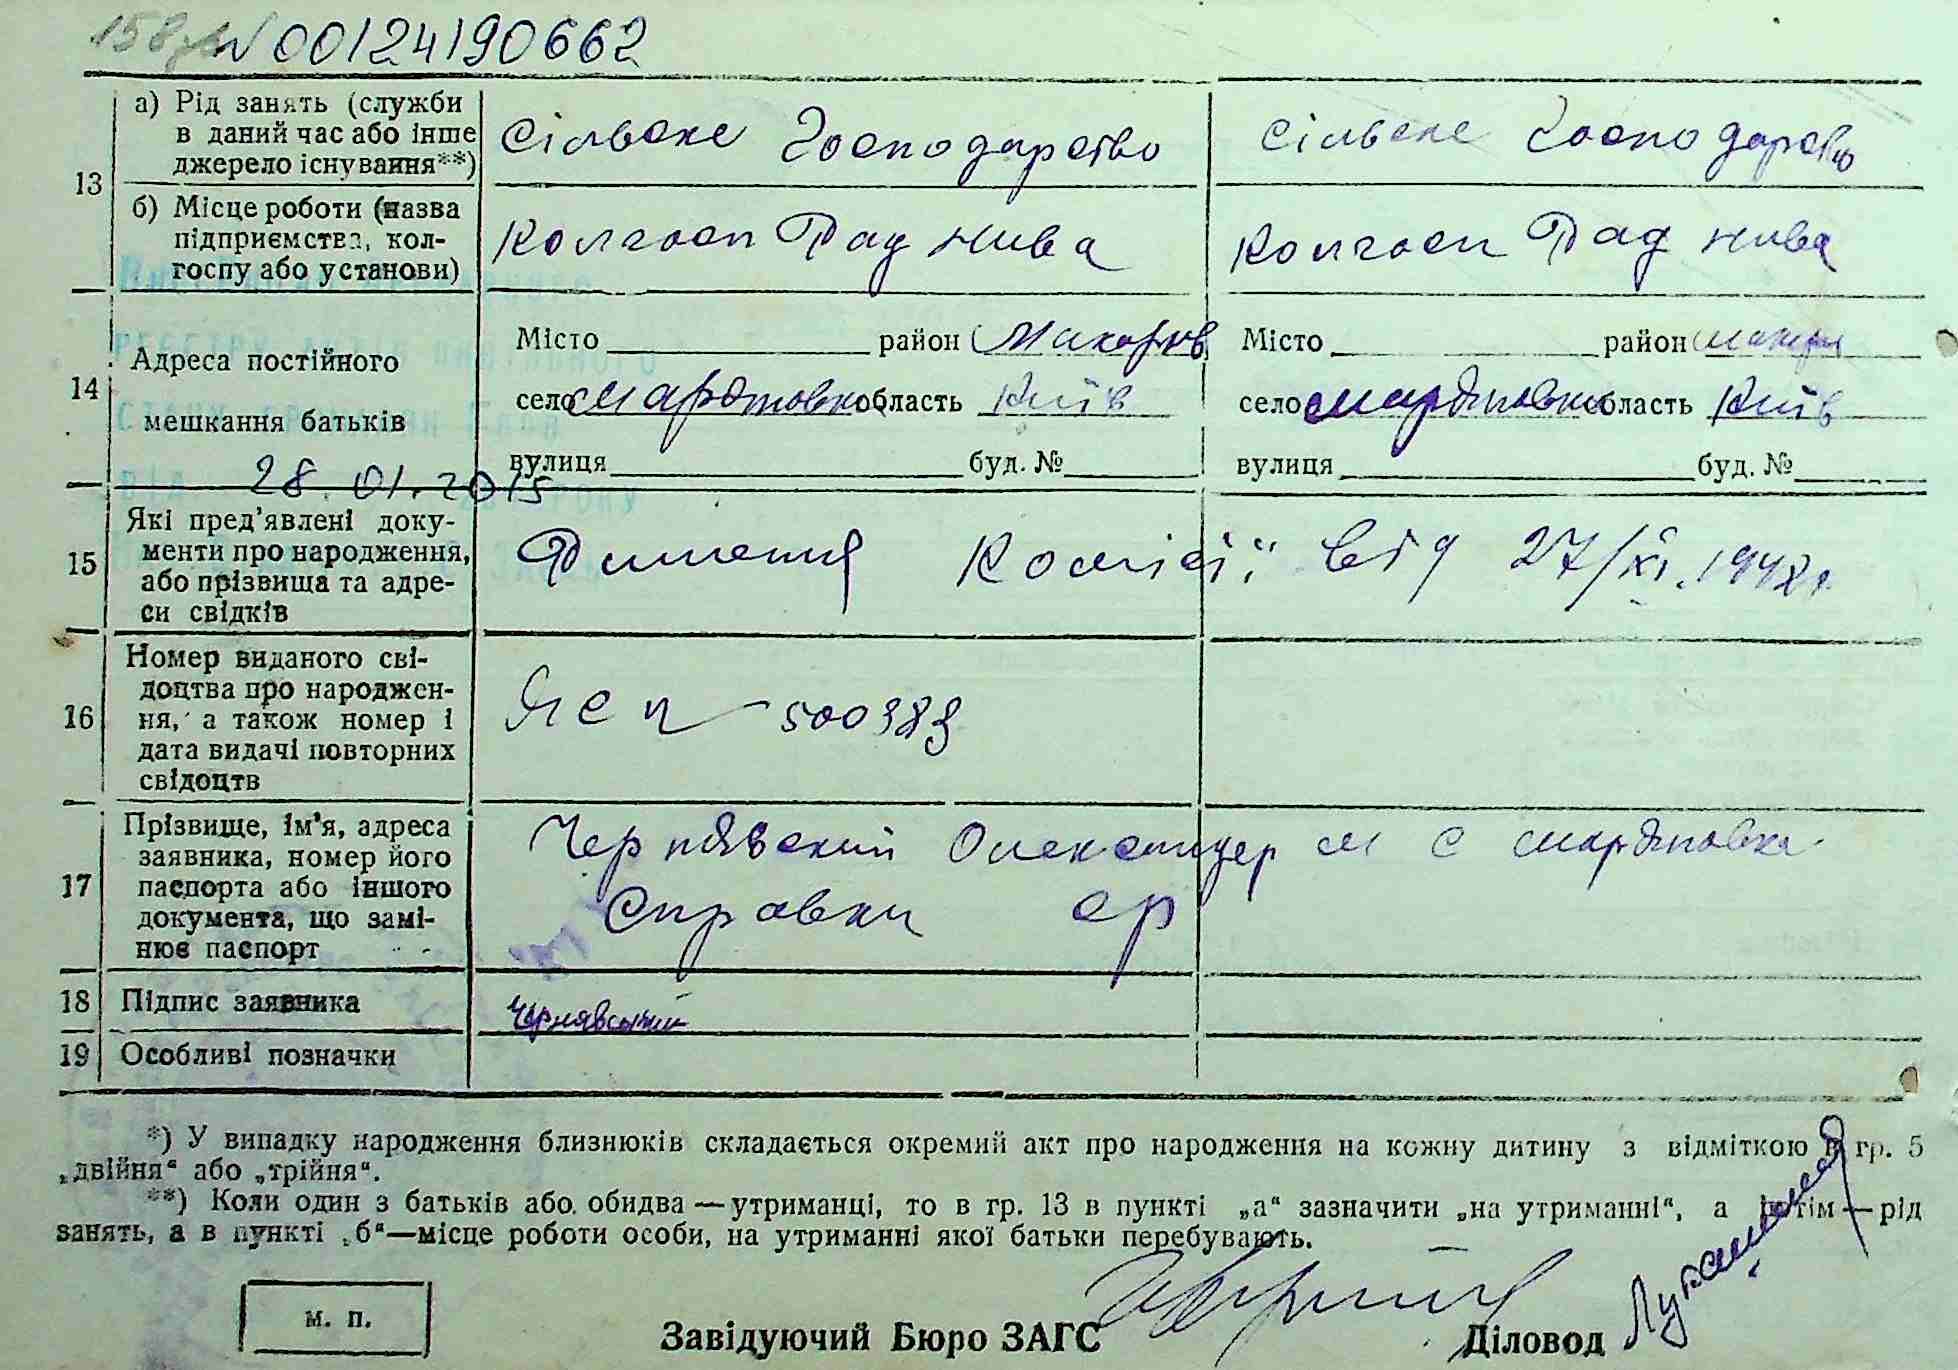 N 00124190662
13 а) Рід занять (служби в даний час або інше джерело існування**) Сільське Господарство Сільське Господарство
б) Місце роботи (назва підприємства, колгоспу або установи) Колгосп Рад нива Колгосп Рад нива
14 Адреса постійного мешкання батьків
Місто район Макарів Місто район
село область Київ село область Київ
вулиця буд. № вулиця буд. №
28.01.2015
15 Які пред'явлені документи про народження, або прізвища та адреси свідків Рішення Комісії від 27/XI.1948р.
16 Номер виданого свідоцтва про народження, а також номер і дата видачі повторних свідоцтв 500383
17 Прізвище, ім'я, адреса заявника, номер його паспорта або іншого документа, що замінює паспорт Чернявский Олександер м с
Справки ср
18 Підпис заявника Чернявський
19 Особливі позначки
*) У випадку народження близнюків складається окремий акт про народження на кожну дитину з відміткою в гр. 5
„двійня“ або „трійня“.
**) Коли один з батьків або обидва — утриманці, то в гр. 13 в пункті „а“ зазначити „на утриманні“, а потім — рід
занять, а в пункті „б“—місце роботи особи, на утриманні якої батьки перебувають.
м. п.
Завідуючий Бюро ЗАГС Діловод